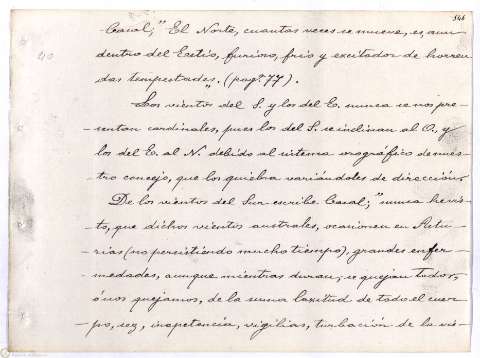 546
Casal; "El Norte, cuantas veces se mueve, es, aun
dentro del Estio, furioso, frio y excitador de horren-
das tempestades". (pagª 77).
Los vientos del S. y los del E. nunca se nos pre-
sentan cardinales, pues los del S. se inclinan al O. y
los del E. al N. debido al sistema orográfico de nues-
tro concejo, que los quiebra variándoles de dirección.
De los vientos del Sur escribe Casal; "nunca he vis-
to, que dichos vientos australes, ocasionen en Astu-
rias (no persistiendo mucho tiempo), grandes enfer-
medades, aunque mientras duran, se quejan todos,
ó nos quejamos, de la suma laxitud de todo el cuer-
po, sed, inapetencia, vigilias, turbación de la vis-